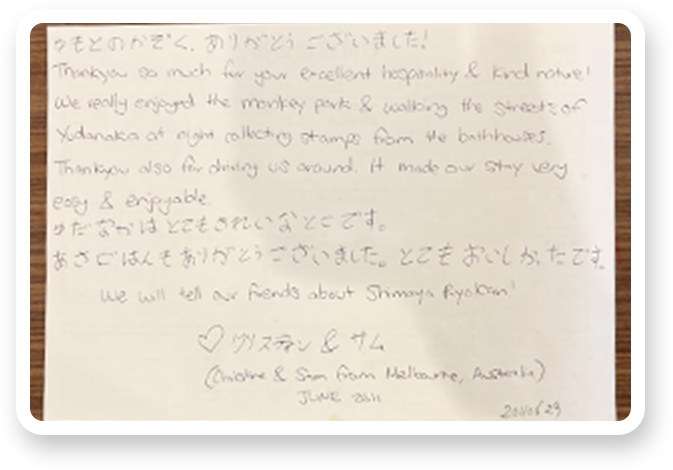 ゆもとのかぞく、ありがとうございました!
Thankyou so much for your excellent hospitality & kind nature!
We really enjoyed the monkey park & walking the streets of
Yudanaka at night collecting stamps from the bathhouses.
Thankyou also for driving us around. It made our stay very
easy & enjoyable.
ゆだなかはとてもきれいなとこです。
あさごはんもありがとうございました。とてもおいしかたです。
We will tell our friends about Shimaya Ryokan!
♡ クリスティン & サム
(Christine & Sam from Melbourne, Australia)
JUNE 2011
20110629